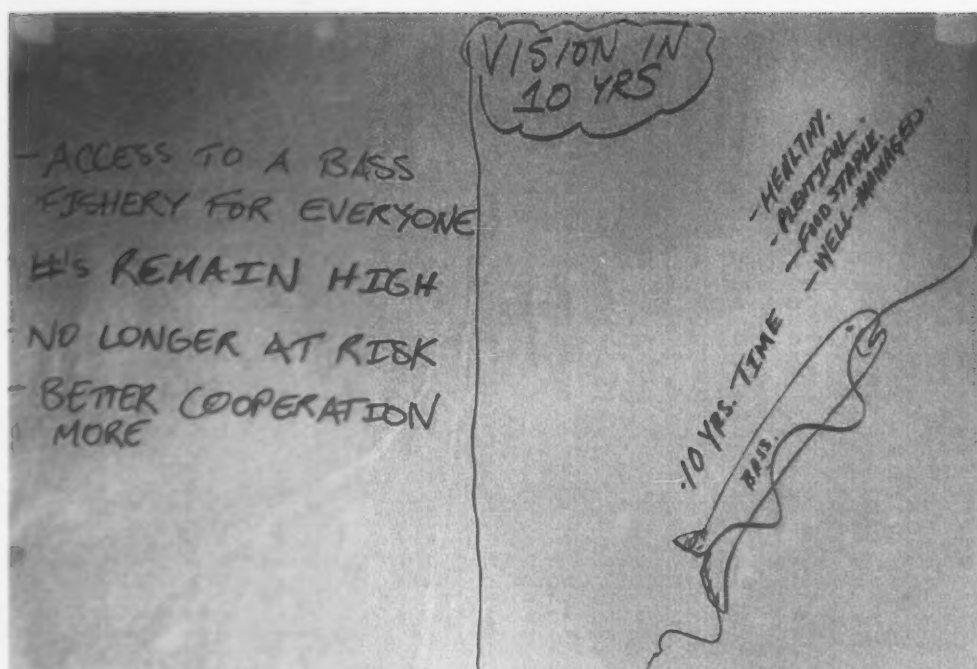 VISION IN
10 YRS
- ACCESS TO A BASS
FISHERY FOR EVERYONE
#'s REMAIN HIGH
NO LONGER AT RISK
- BETTER COOPERATION
MORE
- HEALTHY.
- PLENTIFUL.
- FOOD STAPLE.
- WELL-MANAGED.
10 YRS. TIME
BASS.